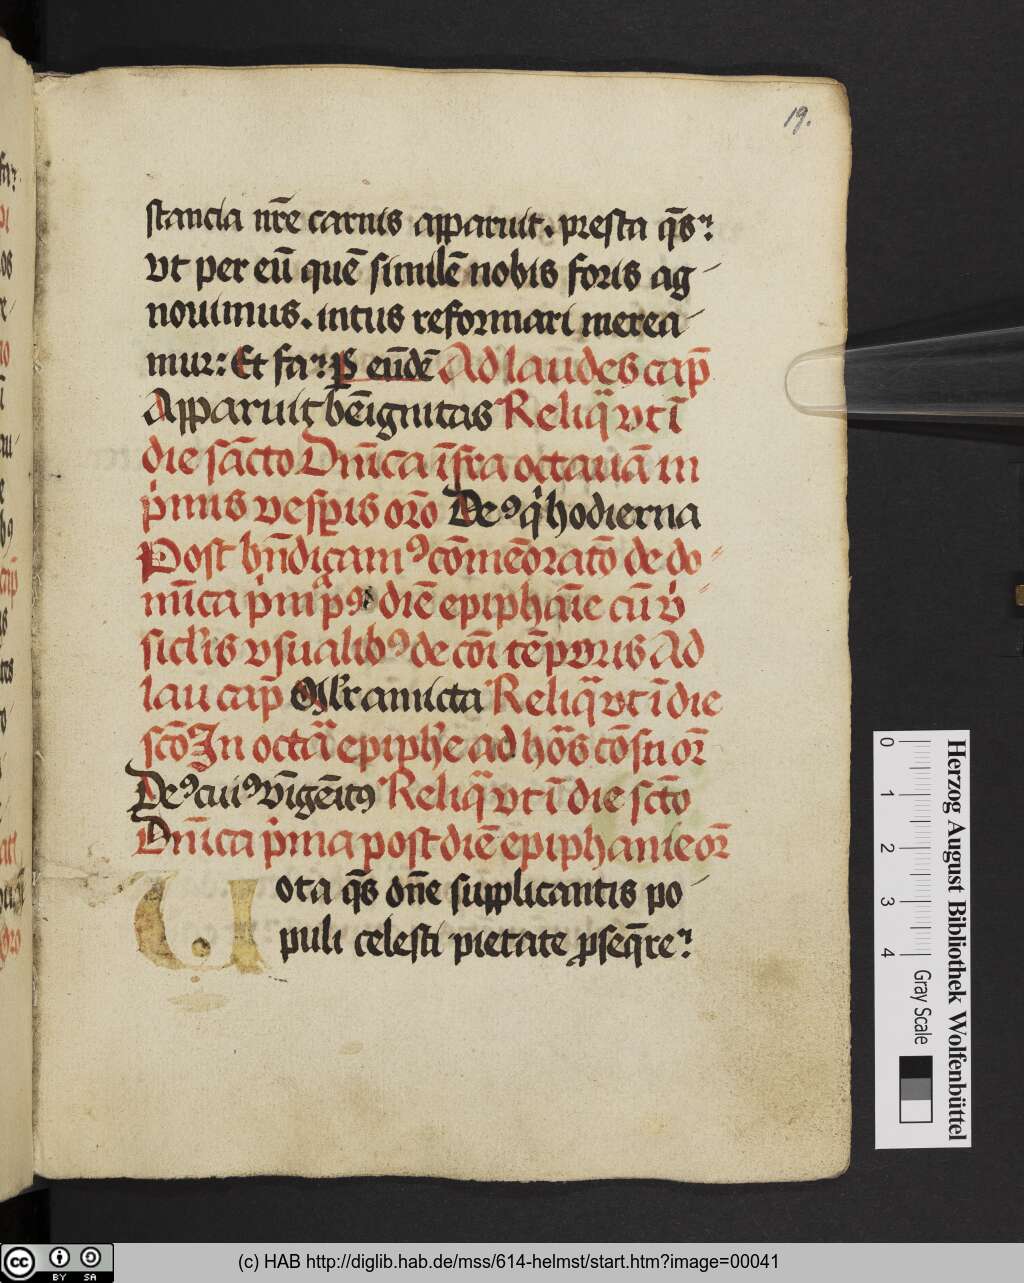 19.
stancia nr̄e carnis apparuit. presta q̄s
vt per eū quē similē nobis foris ag
nouimus. intus reformari merea
mur: Et fa: P eūdē Ad laudes cap̄
Apparuit bēignitas Reliq̄ vt ī
die sācto Dn̄ica īfra octauā in
pͥmis vesꝑis or̄o Deꝰ qͥ hodierna
Post bn̄dicam cōmēoratō de do
mīca pͥm pꝰ diē epiphāie cū
de cōi tēporis Ad
lau cap̄ amicta Reliq̄ vt ī die
scō In octā epiphe ad hōs cōsn or̄
Deꝰ cuiꝰ vīgēitꝰ Reliq̄ vt ī die scto
Dn̄ica pͥma post diē epiphanie or̄
Uota q̄s dn̄e supplicantis po
puli celesti pietate ꝓseq̄re
Herzog August Bibliothek Wolfenbüttel
0 1 2 3 4 Gray Scale
cc BY SA
(c) HAB http://diglib.hab.de/mss/614-helmst/start.htm?image=00041